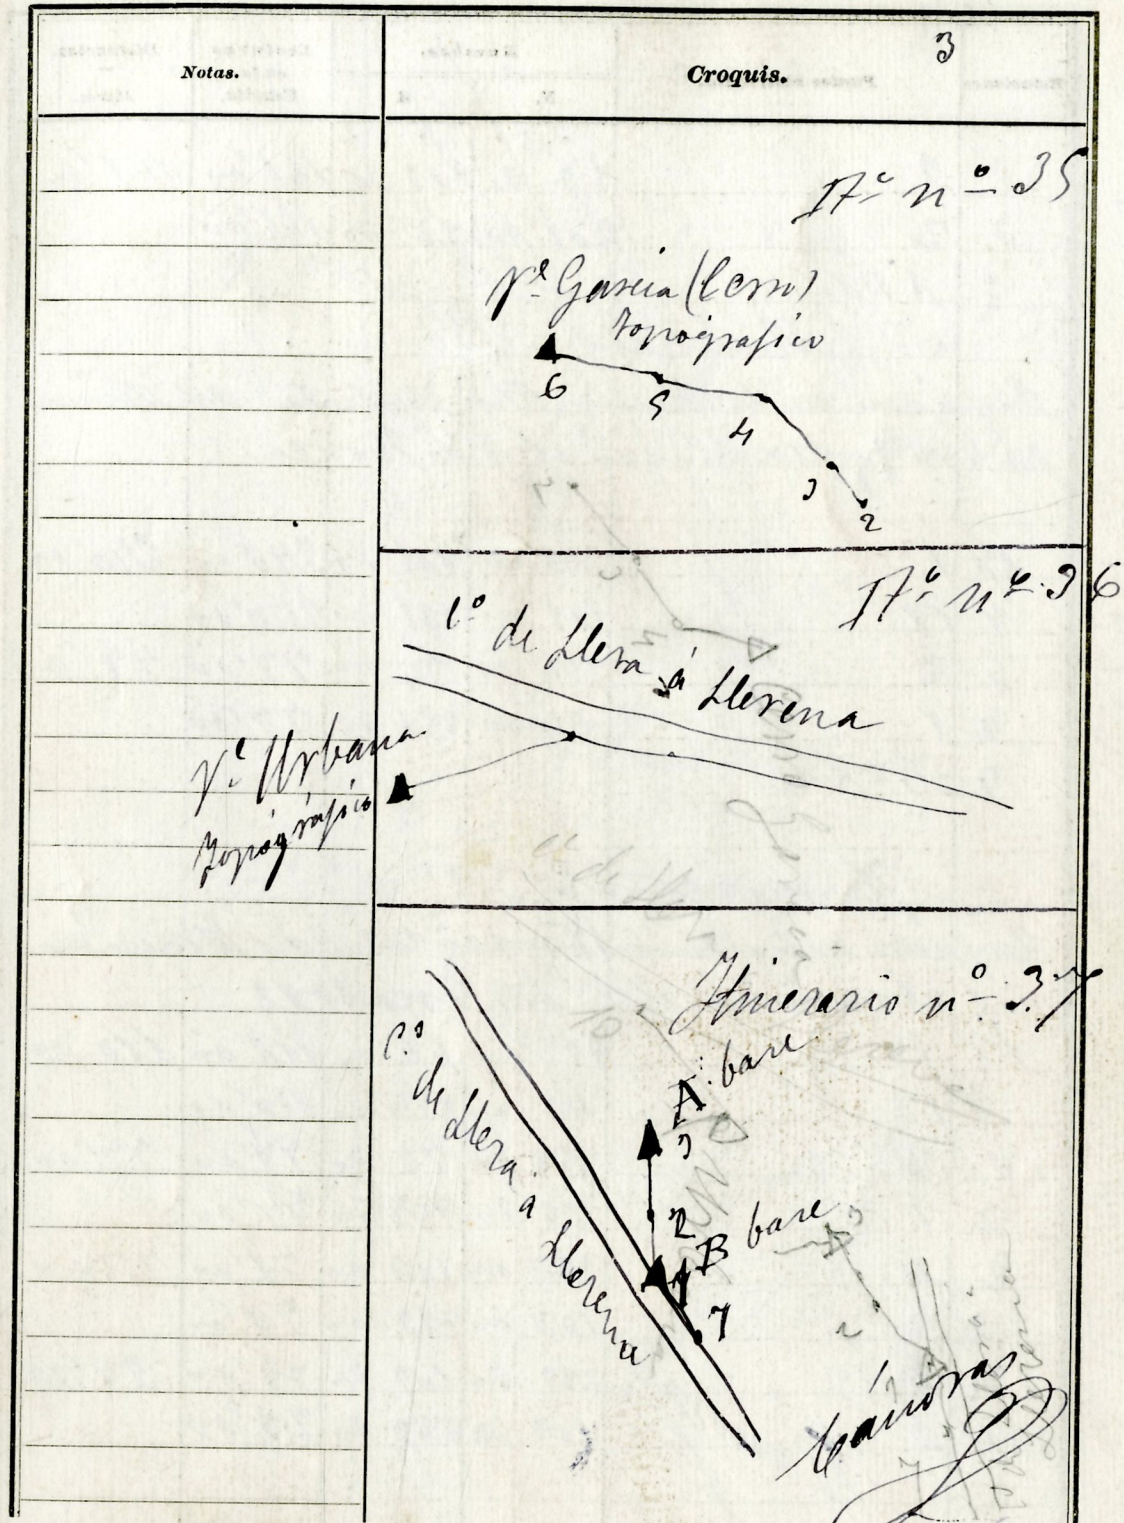 3
Notas.
Croquis.
It.º nº 35
Vº Garcia (Cerro)
topográfico
6
5
4
3
2
It.º nº 36
Cº de Llera á Llerena
Vº Urbana
topográfico
Itinerario nº 37
Cº de Llera á Llerena
A base
3
2
B base
1
7